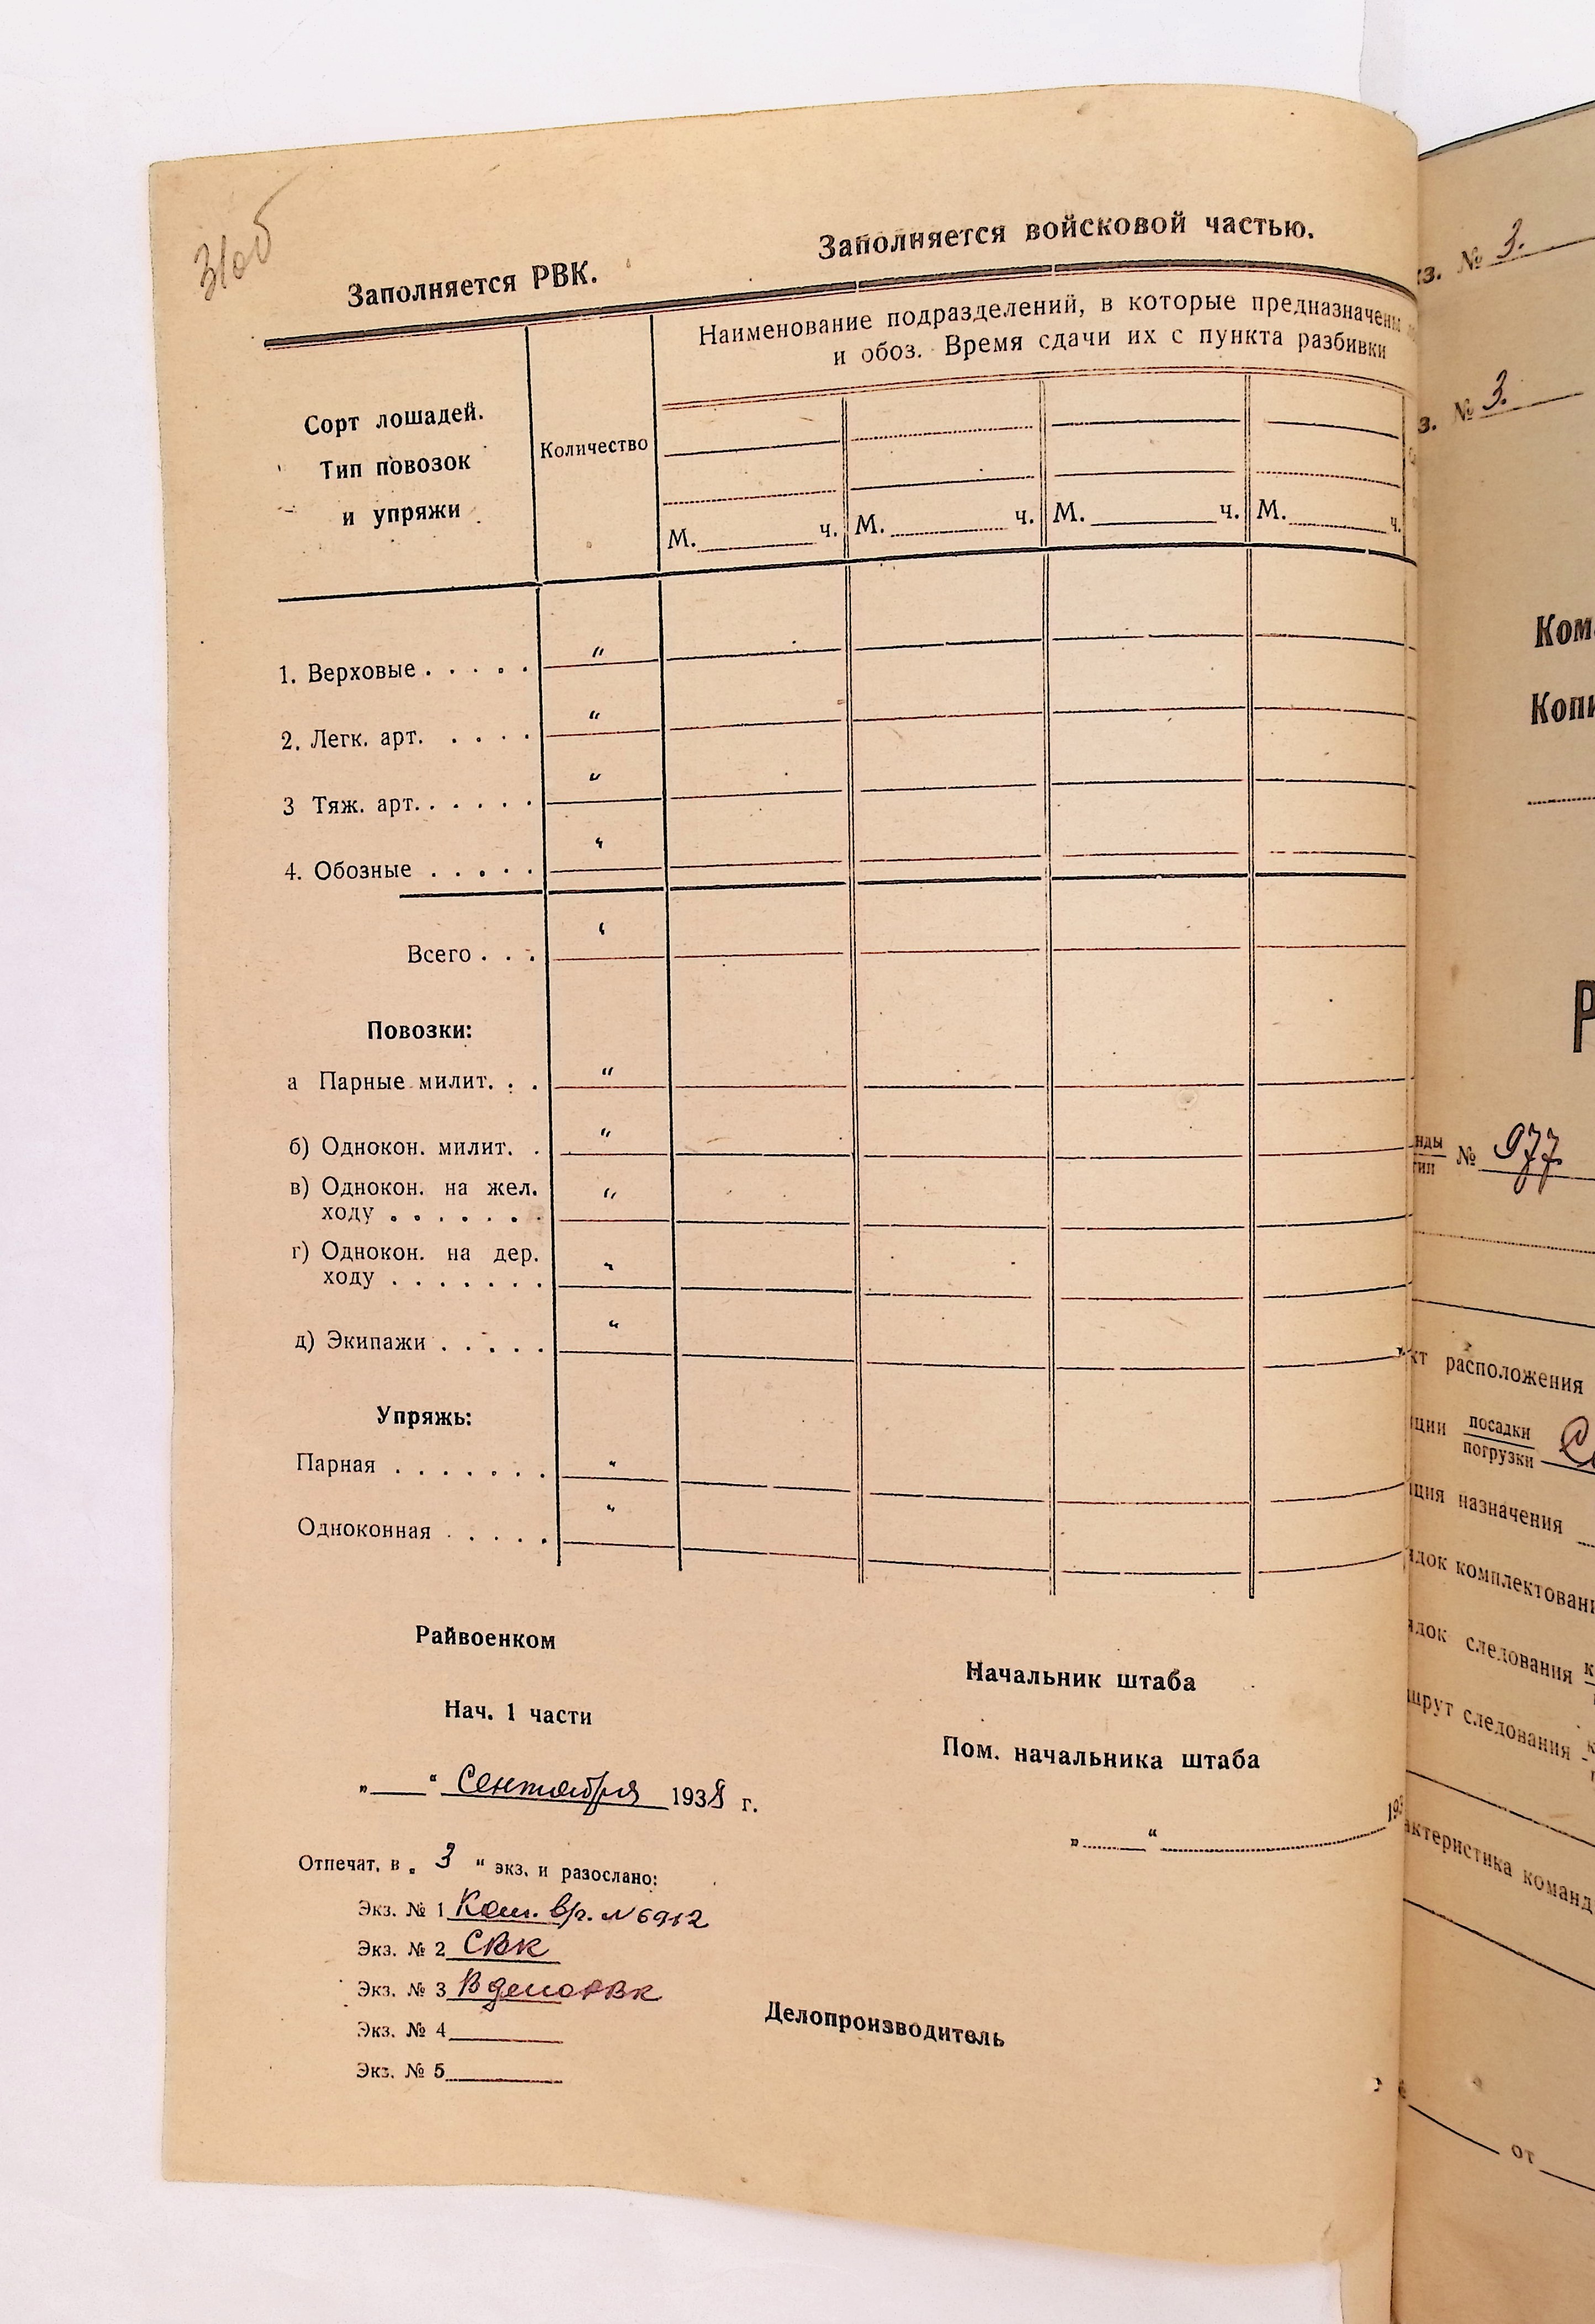 31об
Заполняется РВК.
Заполняется войсковой частью.
Сорт лошадей.
Тип повозок
и упряжи
Количество
Наименование подразделений, в которые предназначены
и обоз. Время сдачи их с пункта разбивки
М. ч. М. ч. М. ч. М. ч.
1. Верховые . . . . . "
2. Легк. арт. . . . . "
3 Тяж. арт. . . . . . "
4. Обозные . . . . . "
Всего . . . "
Повозки:
а Парные милит. . . "
б) Однокон. милит. . "
в) Однокон. на жел.
ходу . . . . . . . "
г) Однокон. на дер.
ходу . . . . . . . "
д) Экипажи . . . . . "
Упряжь:
Парная . . . . . . . "
Одноконная . . . . . "
Райвоенком
Нач. 1 части
„ “ Сентября 1938 г.
Начальник штаба
Пом. начальника штаба
„ “ 193
Отпечат. в „ 3 “ экз. и разослано:
Экз. № 1 Ком. вр. № 6912
Экз. № 2 СВК
Экз. № 3 В дело РВК
Экз. № 4
Экз. № 5
Делопроизводитель
№ 3.
№ 3.
№ 977
расположения
посадки
погрузки
назначения
следования
следования
от